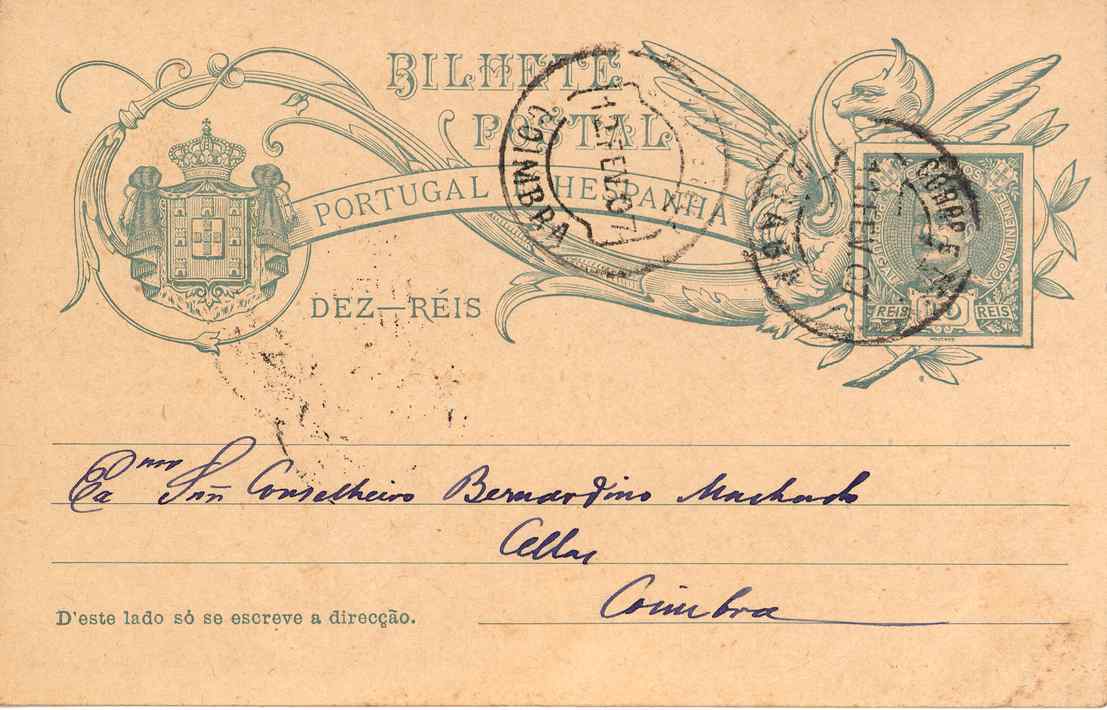 BILHETE
POSTAL
PORTUGAL HESPANHA
DEZ—RÉIS
COIMBRA
12 FEV 07
REIS 10 REIS
Exmo Snr Conselheiro Bernardino Machado
Cellas
Coimbra
D'este lado só se escreve a direcção.